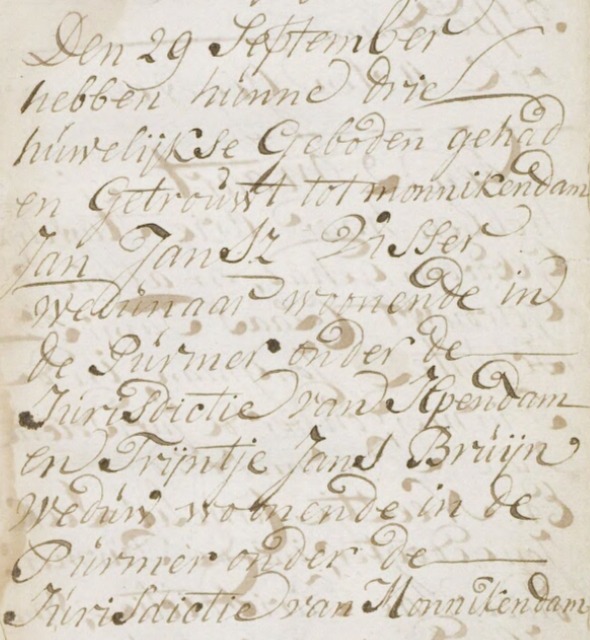 Den 29 September
hebben hunne drie
huwelijkse Geboden gehad
en Getrouwt tot monnikendam
Jan Jansz Visser
Wedunaar woonende in
de Purmer onder de
Jurisdictie van Ilpendam
en Trijntje Jans Bruijn
Weduw woonende in de
Purmer onder de
Jurisdictie van Monnikendam